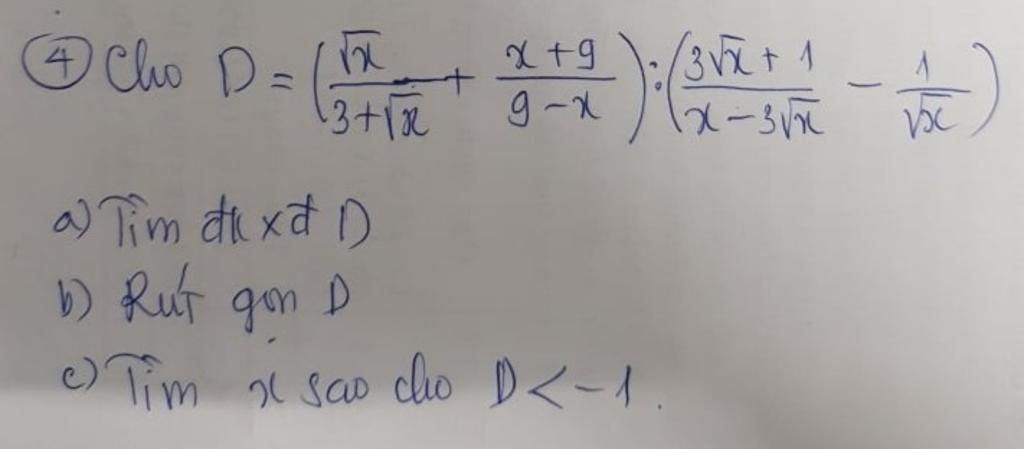 ④ Cho D = (√x/(3+√x) + (x+9)/(9-x)) : ((3√x+1)/(x-3√x) - 1/√x)
a) Tìm đk xđ D
b) Rút gọn D
c) Tìm x sao cho D < -1.